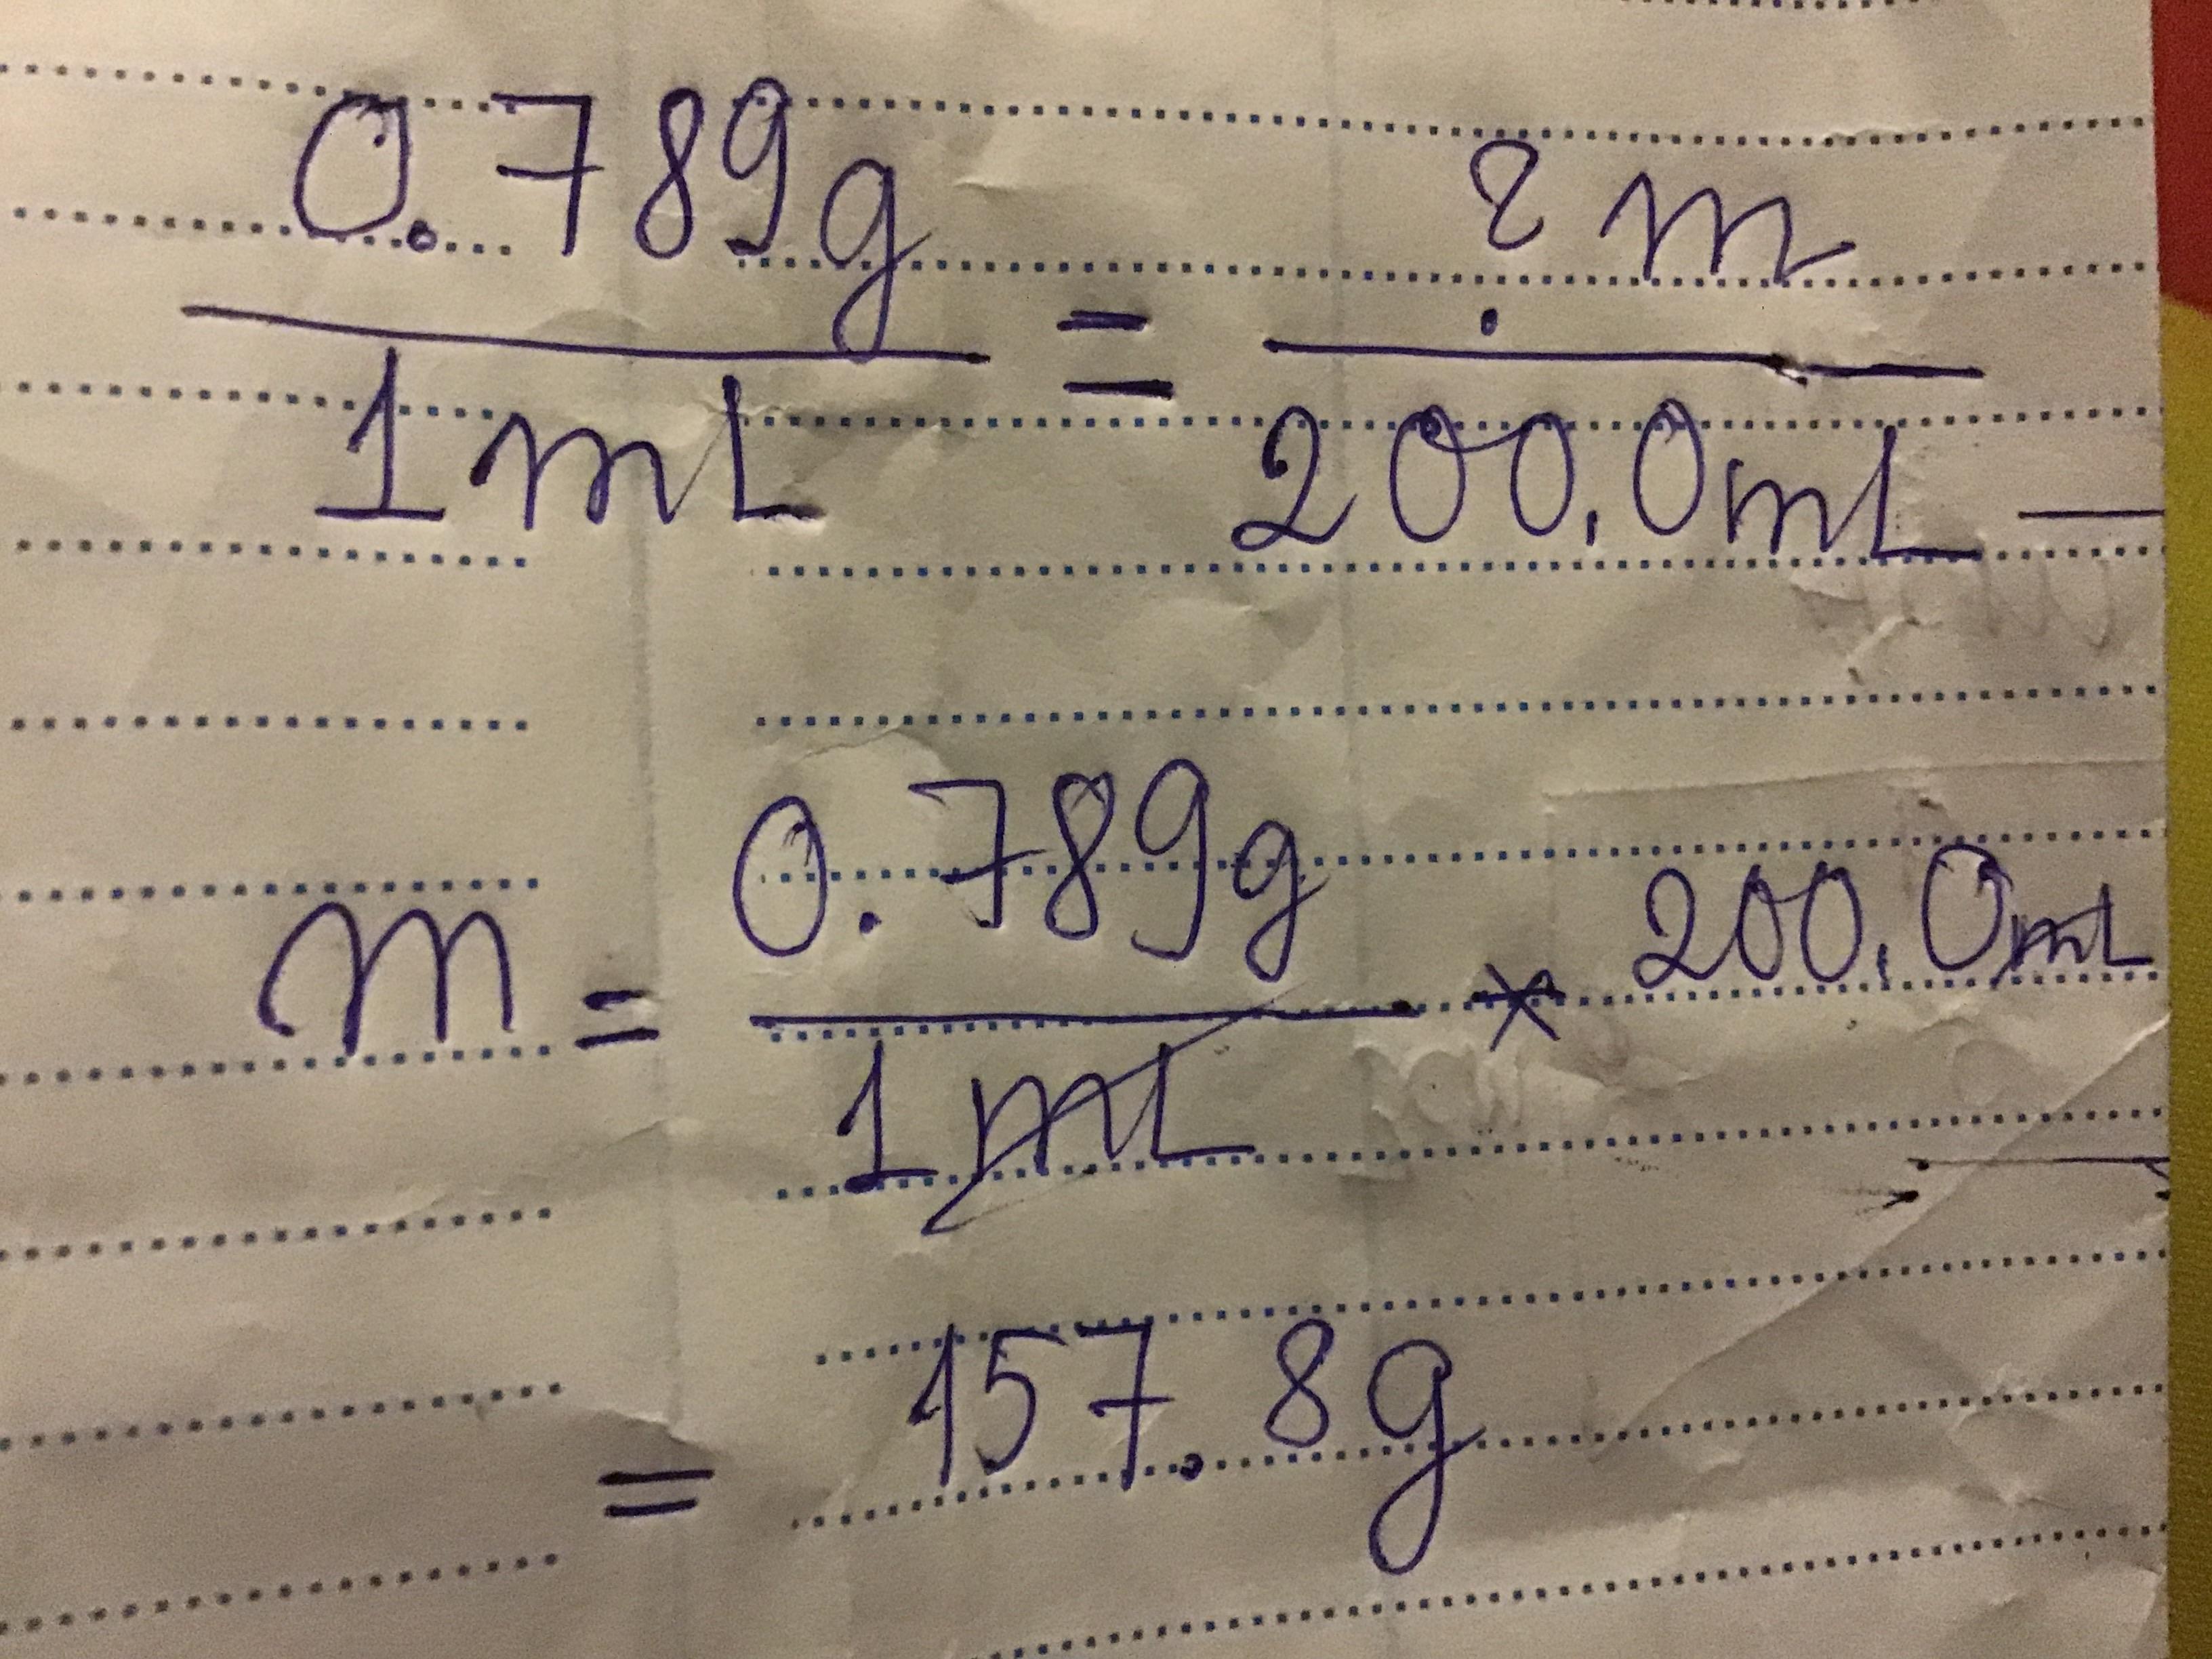 0.789g = ? m
1mL 200.0mL
m = 0.789g * 200.0mL
1mL
= 157.8g